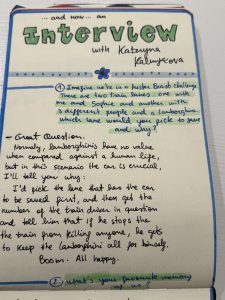 ... and now ... an
Interview
with Kateryna
① Imagine we're in a Mister Beast challenge.
There are two train lanes: one with
me and Sophie and another with
3 different people and a lamborghini
which lane would you pick to save
and why?
- Great Question.
Normally, lamborghinis have no value
when compared against a human life,
but in this scenario the car is crucial,
I'll tell you why:
I'd pick the lane that has the car
to be saved first, and then get the
number of the train driver in question
and tell him that if he stops the
the train from killing anyone, he gets
to keep the lamborghini all for himself.
Boom. All happy.
② what's your favourite memory
of us?